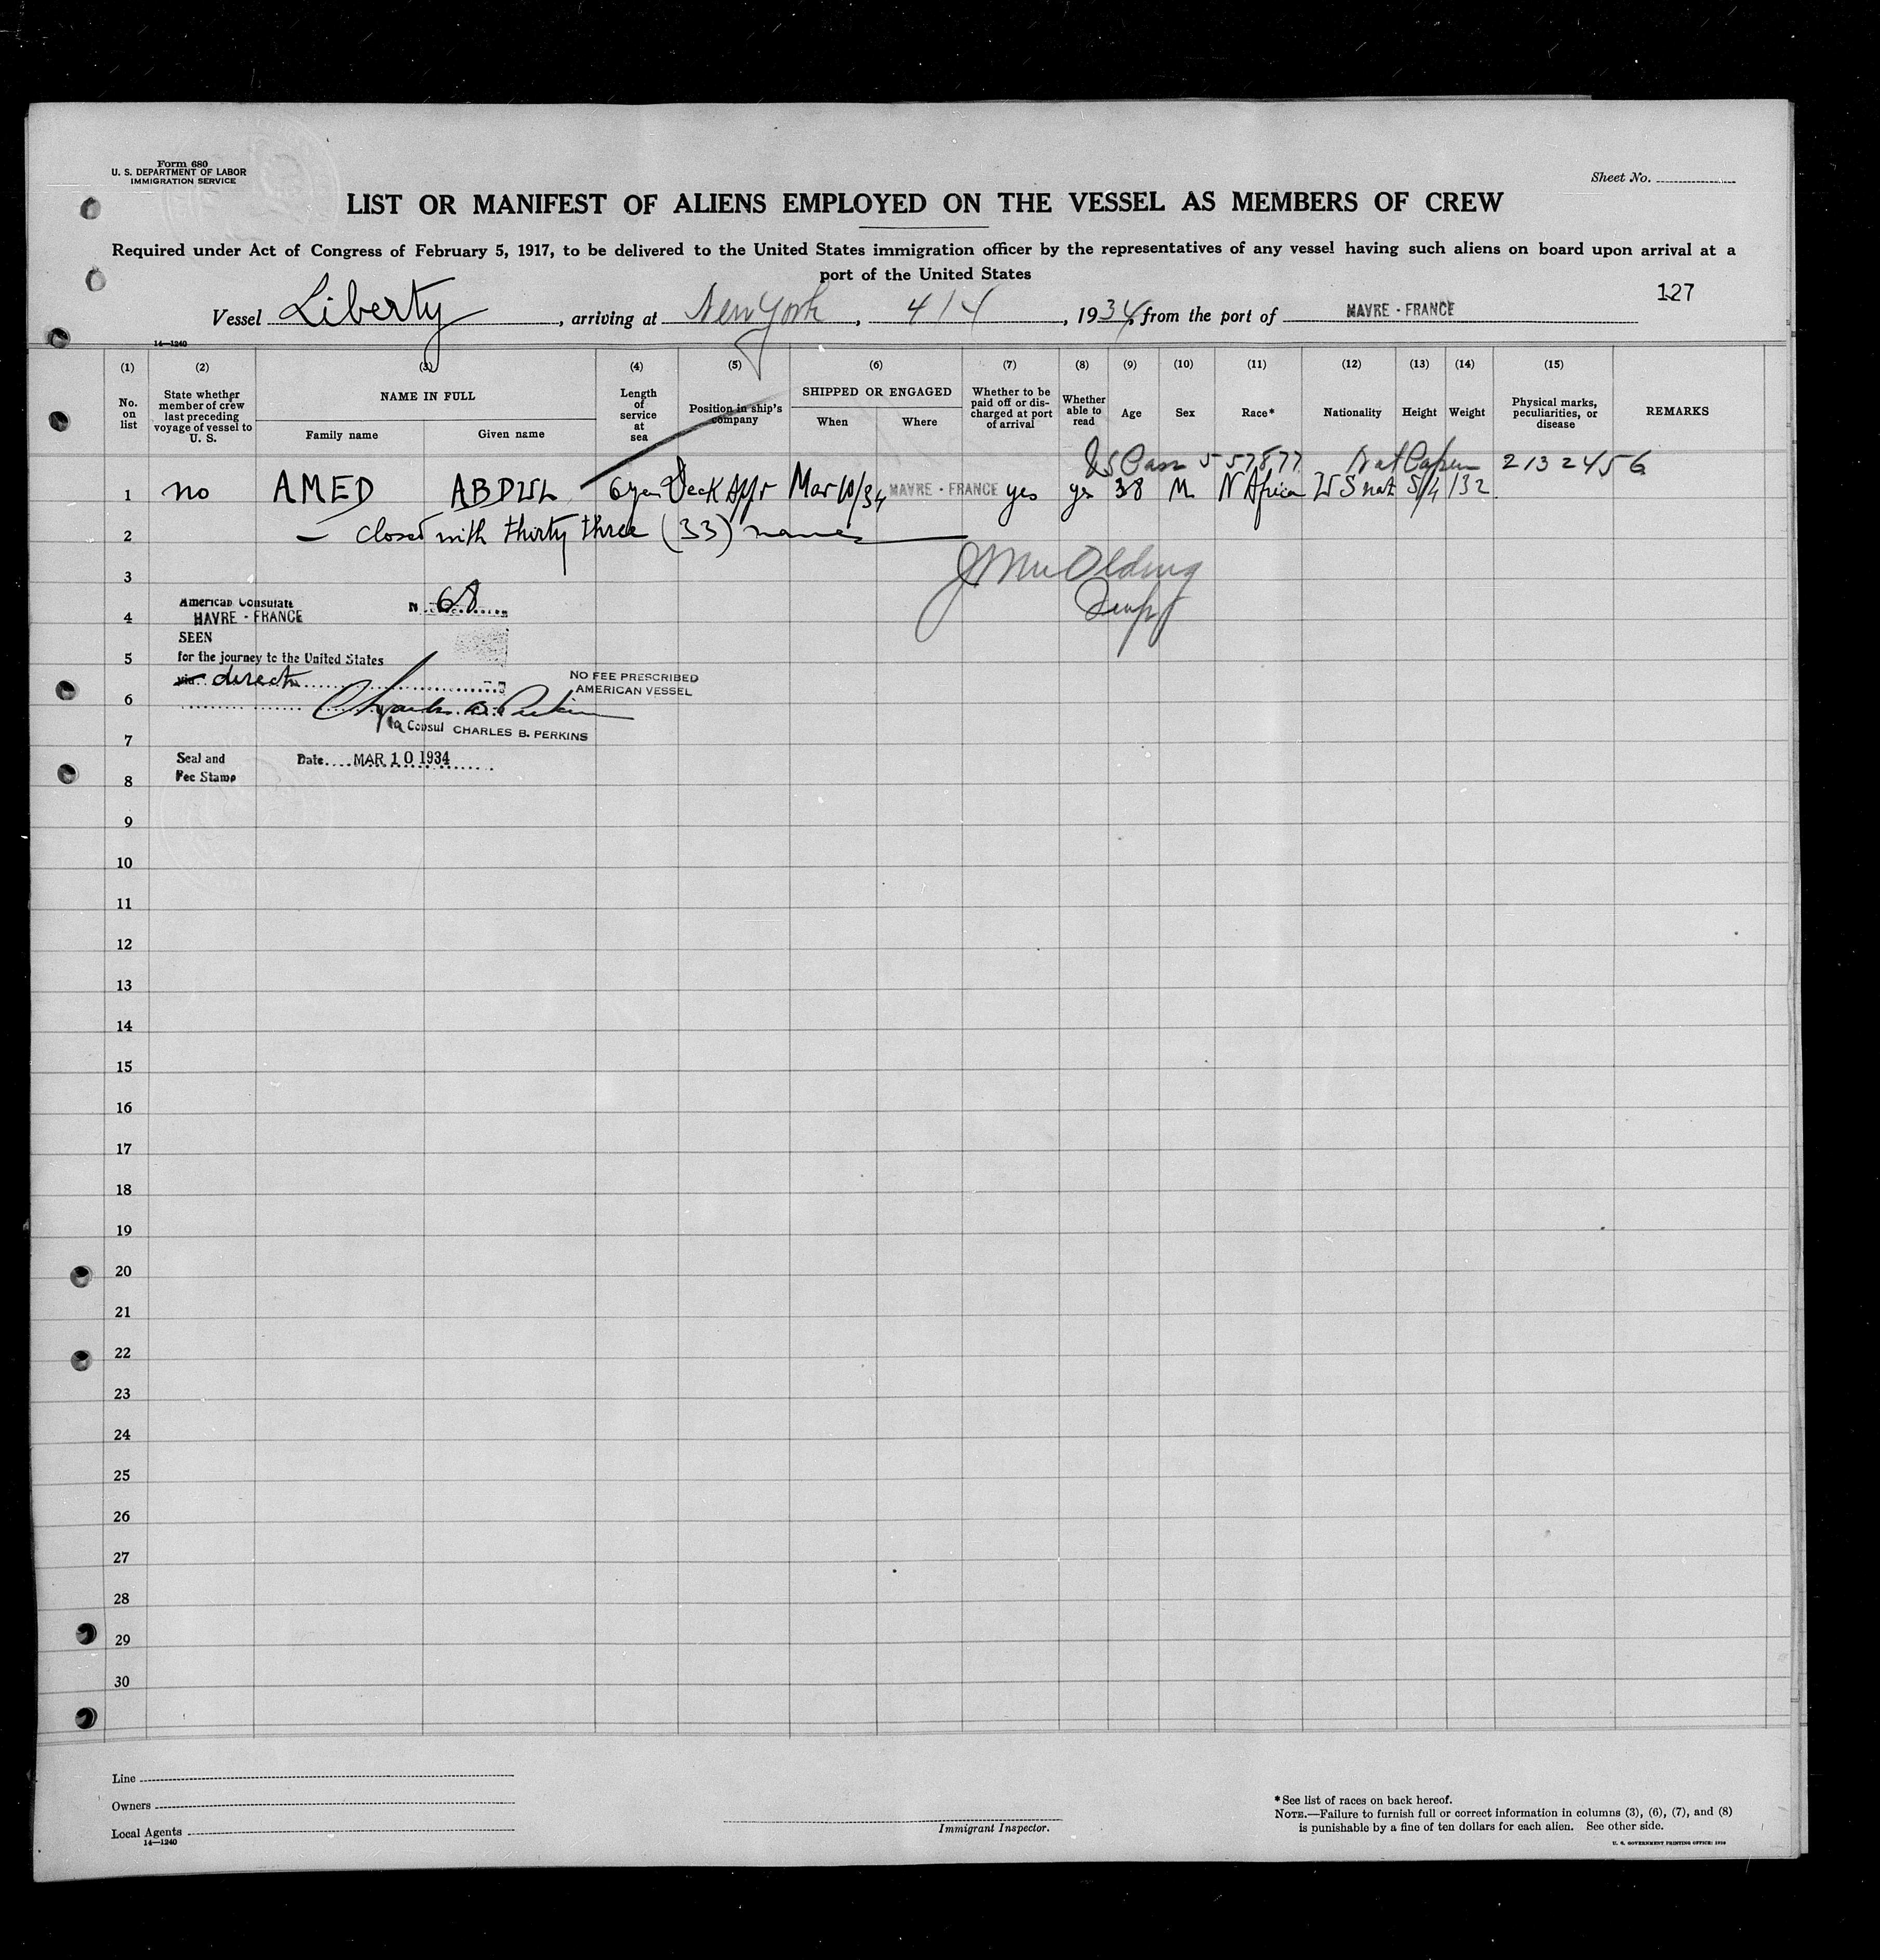 Form 680
U. S. DEPARTMENT OF LABOR
IMMIGRATION SERVICE
Sheet No.
LIST OR MANIFEST OF ALIENS EMPLOYED ON THE VESSEL AS MEMBERS OF CREW
Required under Act of Congress of February 5, 1917, to be delivered to the United States immigration officer by the representatives of any vessel having such aliens on board upon arrival at a
port of the United States
127
Vessel Liberty, arriving at New York, 4/4, 1934, from the port of HAVRE - FRANCE
14—1240
(1) (2) (3) (4) (5) (6) (7) (8) (9) (10) (11) (12) (13) (14) (15)
No. on list
State whether member of crew last preceding voyage of vessel to U. S.
NAME IN FULL
Family name
Given name
Length of service at sea
Position in ship's company
SHIPPED OR ENGAGED
When
Where
Whether to be paid off or discharged at port of arrival
Whether able to read
Age
Sex
Race*
Nationality
Height
Weight
Physical marks, peculiarities, or disease
REMARKS
US Pass 557877 Nat Paper 2132456
1 no AMED ABDUL 6 yen Deck App r Mar 10/34 HAVRE - FRANCE yes yes 38 M N Africa US nat 5/4 132
2 — closed with thirty three (33) names
3
4
5
6
7
8
9
10
11
12
13
14
15
16
17
18
19
20
21
22
23
24
25
26
27
28
29
30
American Consulate
HAVRE - FRANCE
N 68
SEEN
for the journey to the United States
via direct
NO FEE PRESCRIBED
AMERICAN VESSEL
Charles B. Perkins
Consul CHARLES B. PERKINS
Seal and
Fee Stamp
Date MAR 10 1934
Line
Owners
Local Agents
14—1240
Immigrant Inspector.
*See list of races on back hereof.
NOTE.—Failure to furnish full or correct information in columns (3), (6), (7), and (8)
is punishable by a fine of ten dollars for each alien. See other side.